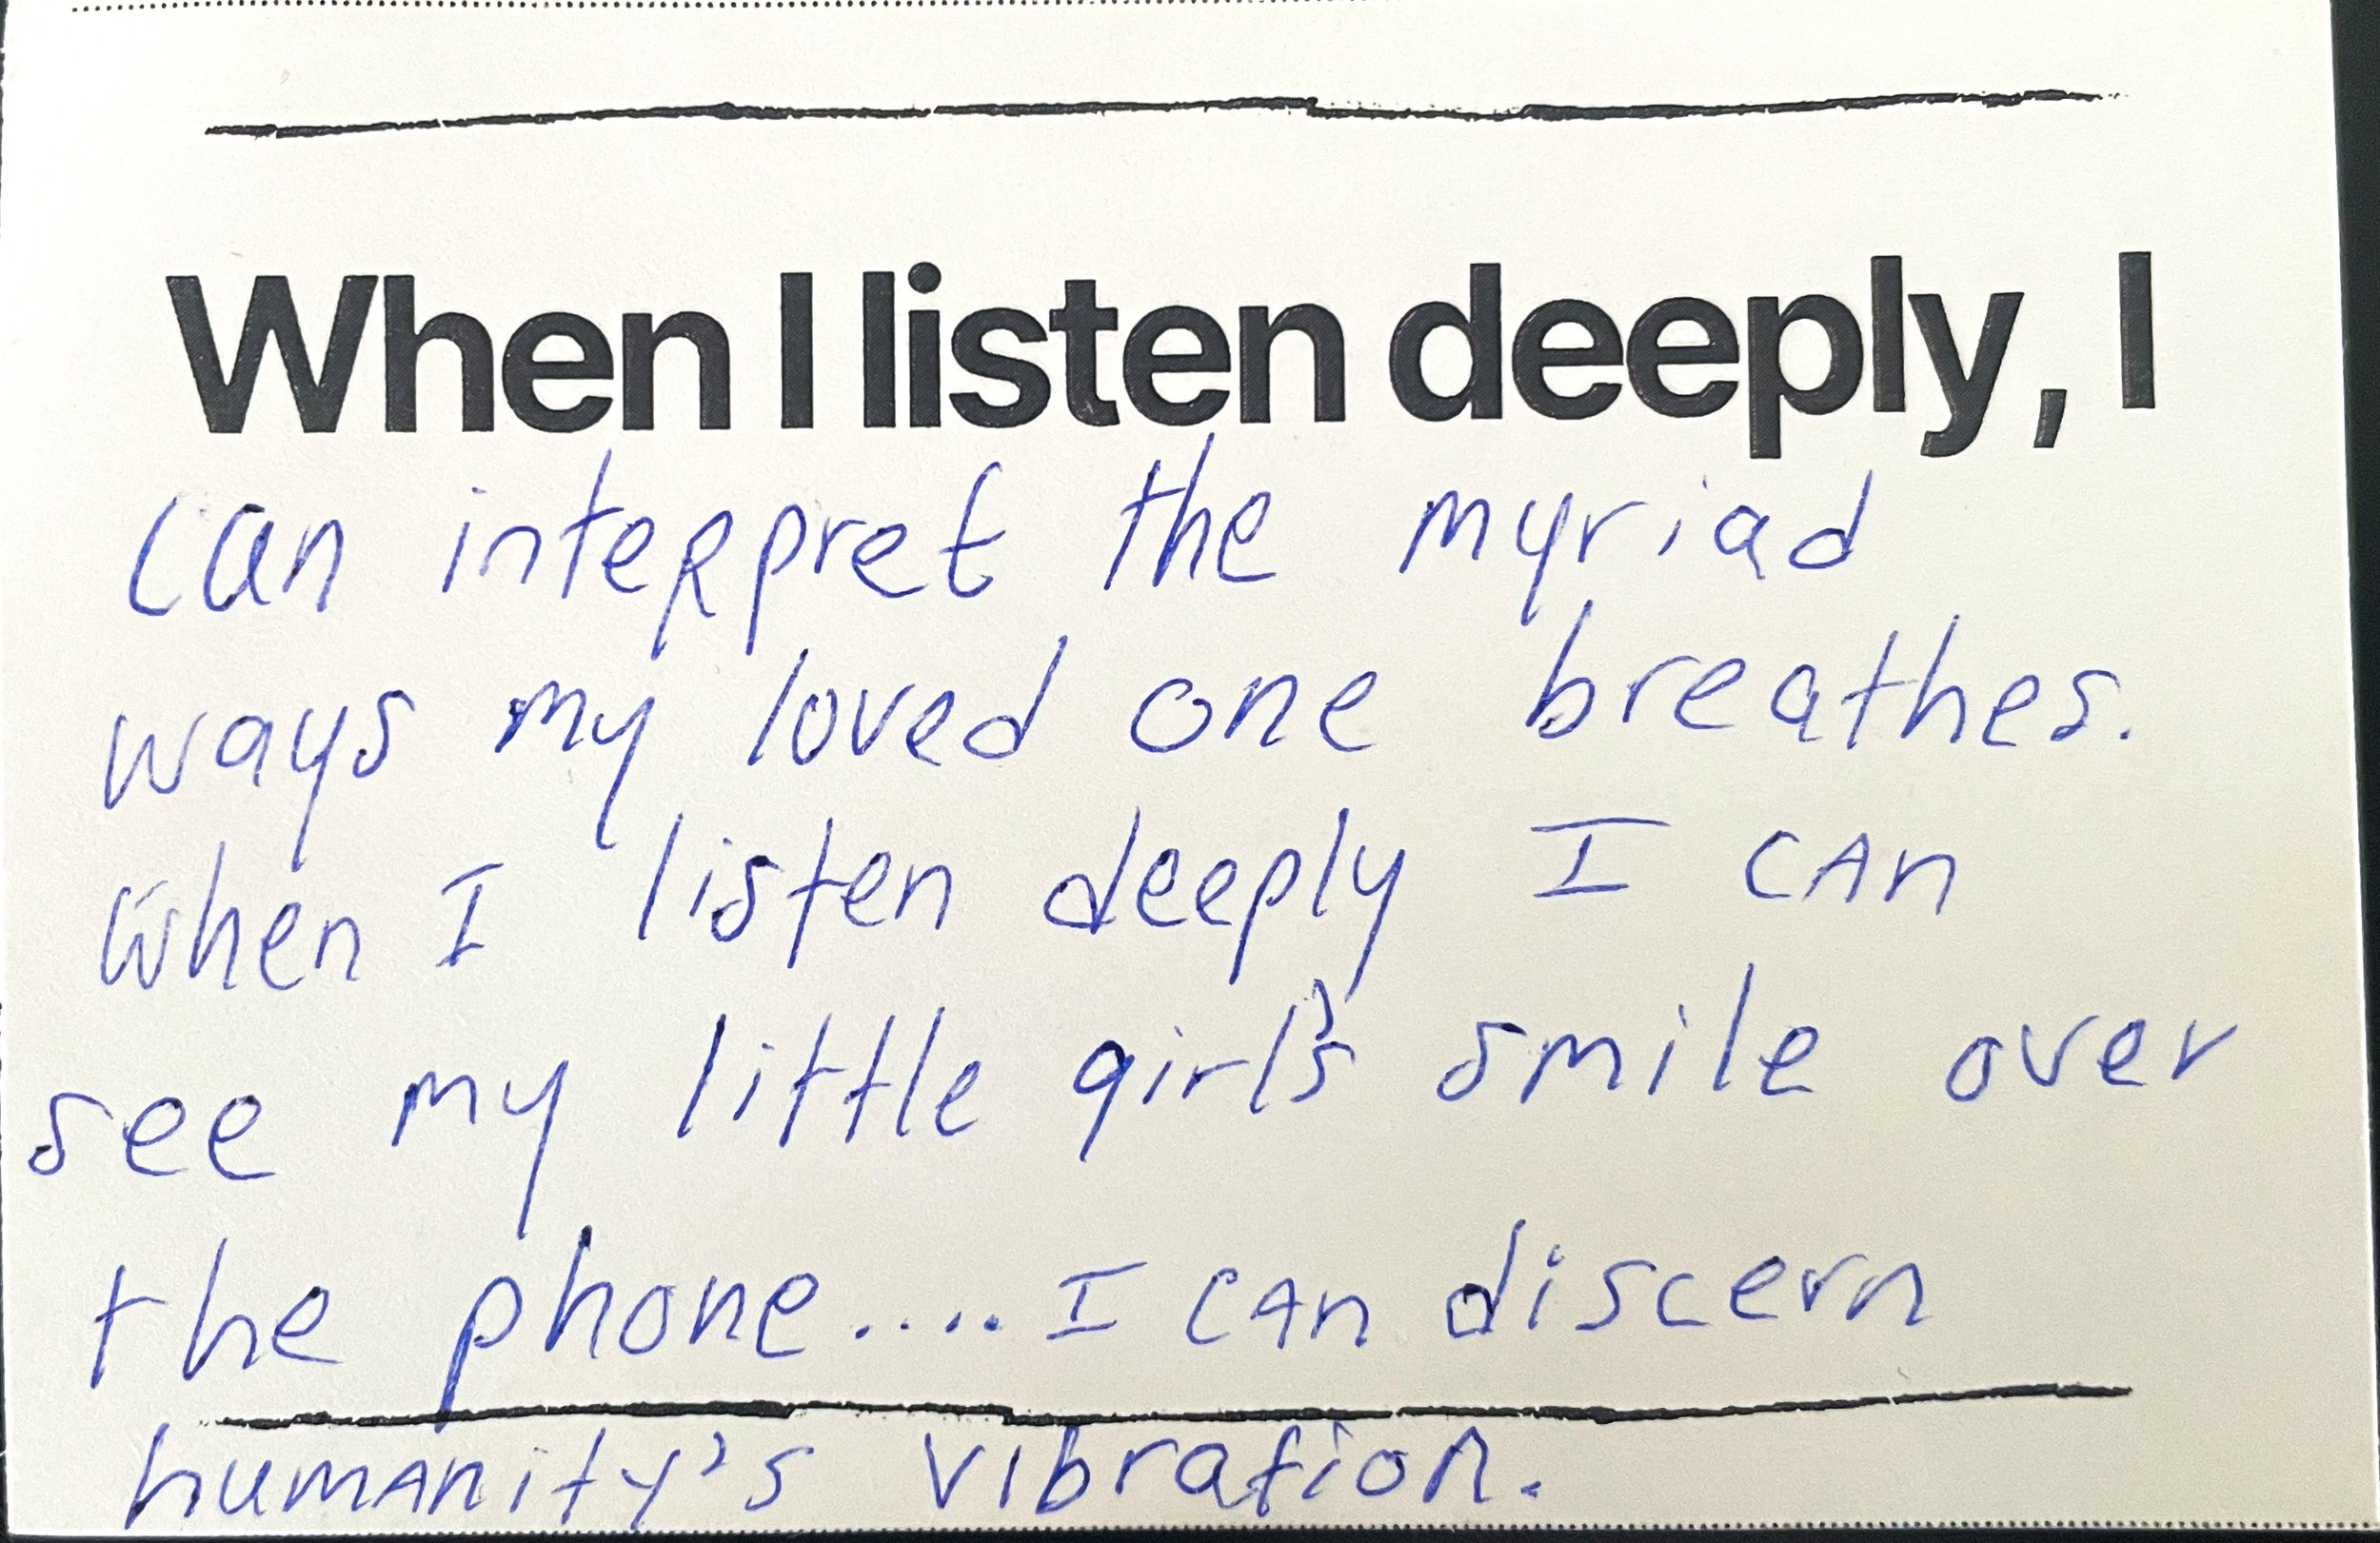 When I listen deeply, I
can interpret the myriad
ways my loved one breathes.
When I listen deeply I can
see my little girl's smile over
the phone.... I can discern
humanity's vibration.